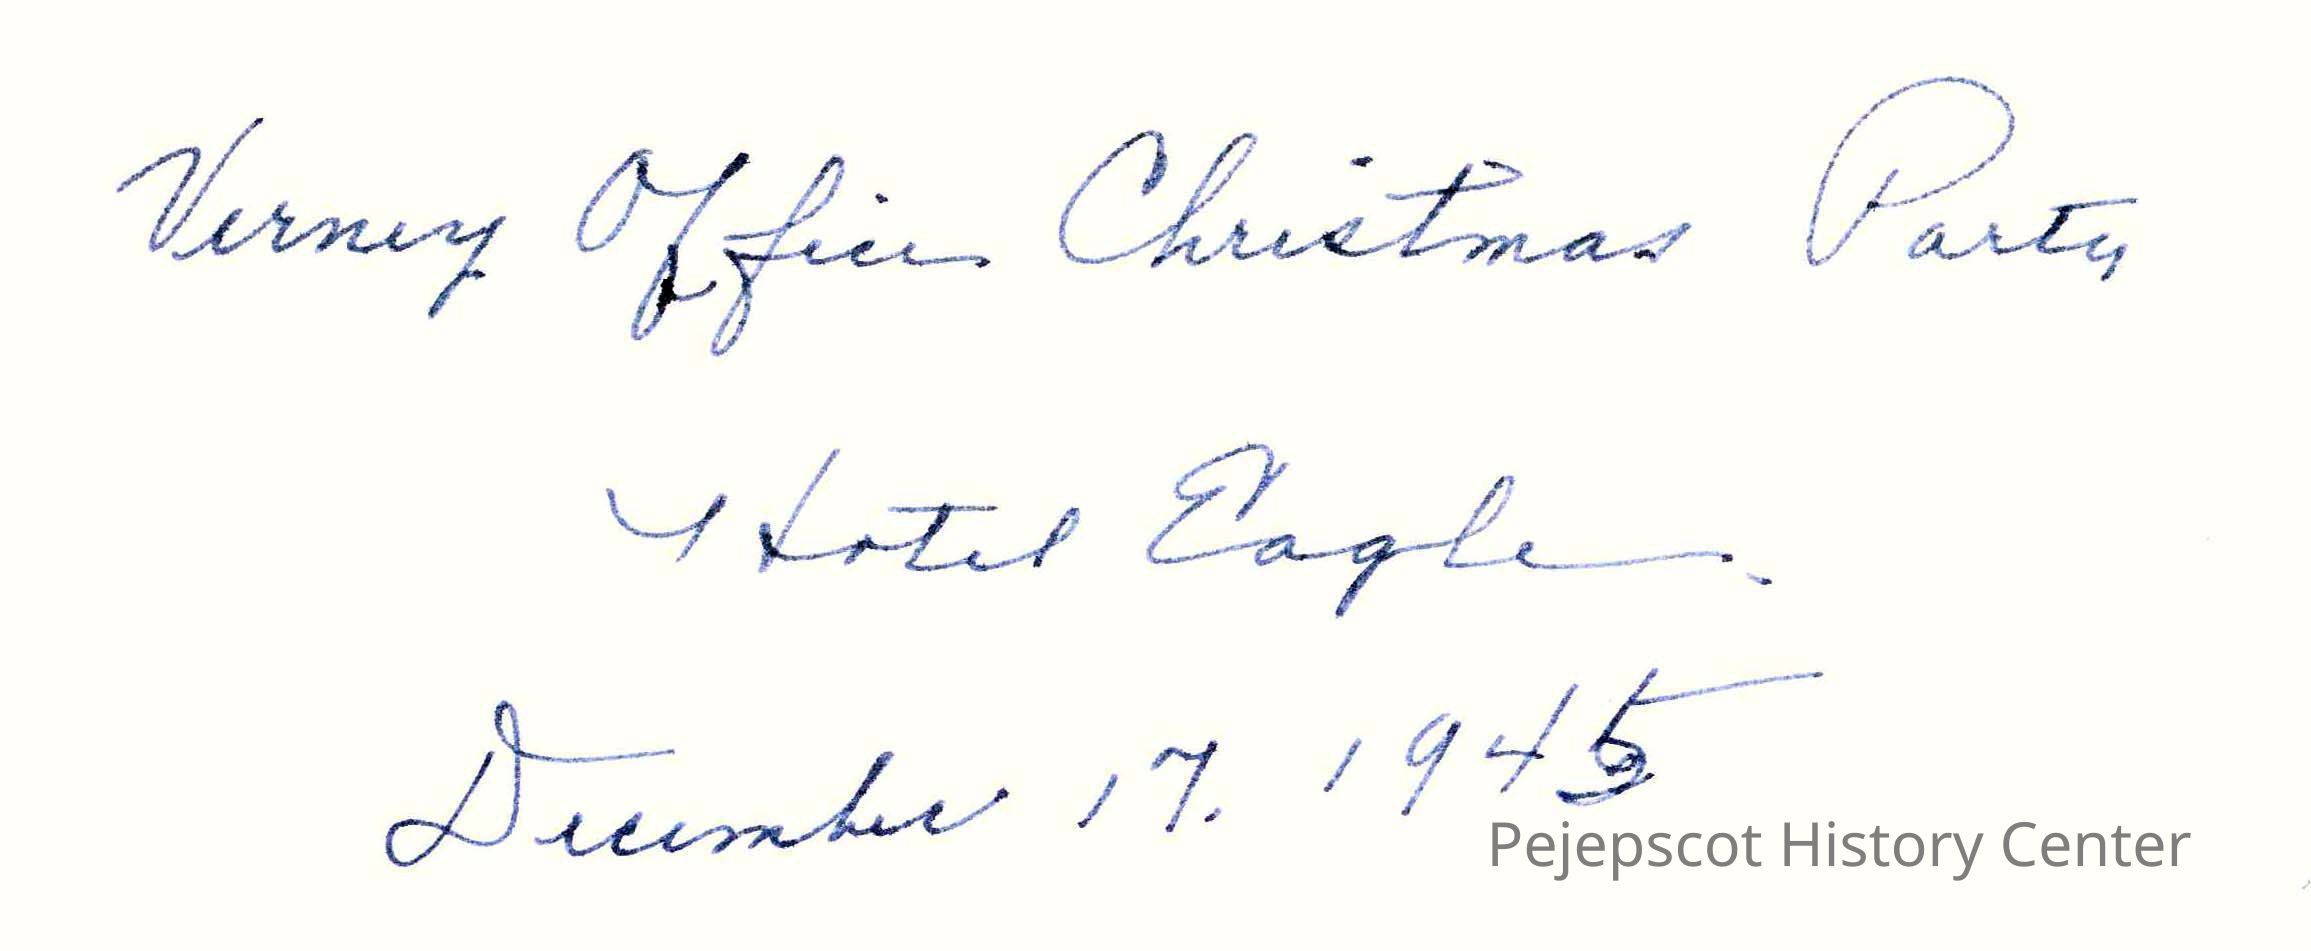 Verney Office Christmas Party
Hotel Eagle.
December 17. 1945
Pejepscot History Center